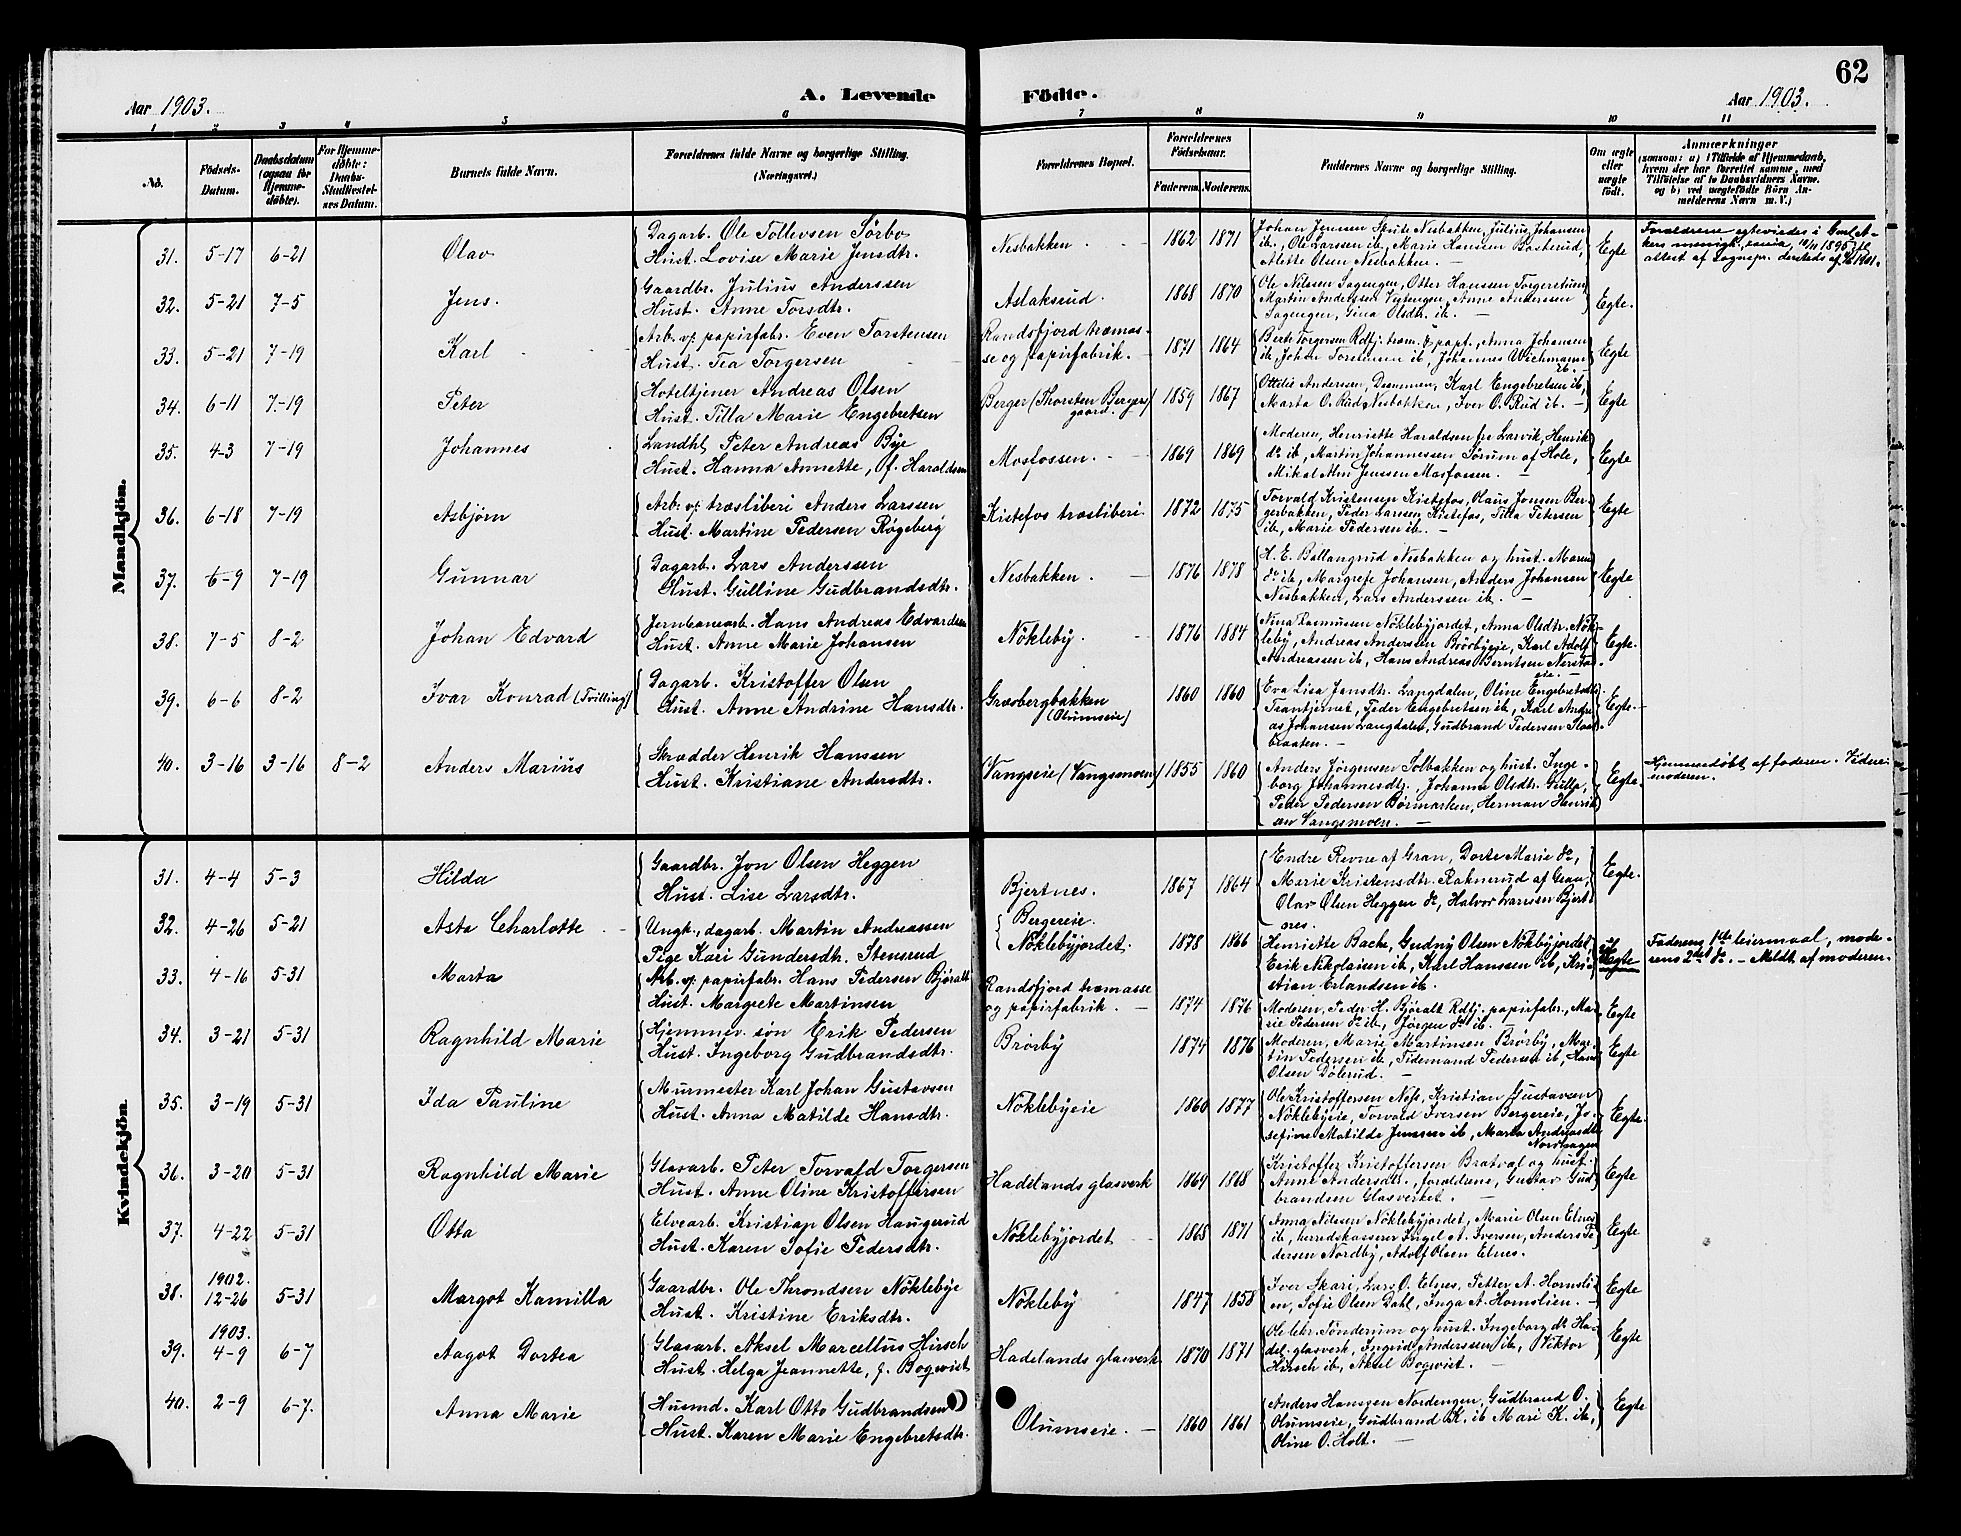 62
Aar 1903.
A. Levende Födte.
Aar 1903.
1 2 3 4 5 6 7 8 9 10 11
No.
Födsels-Datum.
Daabsdatum (ogsaa for Hjemmedöbte).
For Hjemmedöbte: Daabs-Stadfæstelses Datum.
Barnets fulde Navn.
Forældrenes fulde Navne og borgerlige Stilling. (Næringsvei.)
Forældrenes Bopæl.
Forældrenes Födselsaar.
Faderens. Moderens.
Faddernes Navne og borgerlige Stilling.
Om ægte eller uægte födt.
Anmærkninger
(saasom: a) i Tilfælde af Hjemmedaab, hvem der har forrettet samme, med Tilföielse af to Daabsvidners Navne, og b) ved uægtefödte Börn Anmelderens Navn m. V.)
Mandkjön.
31. 5-17 6-21 Olav
Dagarb. Ole Tollevsen Sørbo
Hust. Lovise Marie Jensdtr.
Nesbakken. 1862 1871
Johan Jensen Nesbakken, Julius Johansen
ib., Ole Larssen ib, Marie Hanssen
Alette Olsen Nesbakken. Egte
Forældrene egteviede i
32. 5-21 7-5 Jens.
Gaardbr. Julius Anderssen
Hust. Anne Torsdtr.
Aslaksrud. 1868 1870
Ole Nilssen Sagengen, Otter Hanssen
Martin Anderssen, Anne Anderssen
Sagengen, Gina Olsdtr. ib. Egte.
33. 5-21 7-19 Karl
Arb. v. papirfabr. Even Torstensen
Hust. Tea Torgersen
Randsfjord træmas-
se og papirfabrik. 1871 1864
Berte Torgersen Rdfj. træm. & papf., Anna Johansen
ib, Johan Torstensen ib, Johannes Wichmann
ib. Egte
34. 6-11 7-19 Peter
Hoteltjener Andreas Olsen
Hust. Tilla Marie Engebretsen
Berger (Thorsten Berger
gaard.) 1859 1867
Ottilie Anderssen, Drammen, Karl Engebretsen ib,
Marta O. Rud, Nesbakken, Iver O. Rud ib. Egte
35. 4-3 7-19 Johannes
Landhl. Peter Andreas Bye
Hust. Hanna Annette, f. Haraldsen
Mosfossen. 1869 1869
Moderen, Henriette Haraldsen fra Larvik, Henrik
do ib, Martin Johannessen Sørum af Hole,
Mikal Alm Jenssen Mosfossen. Egte
36. 6-18 7-19 Asbjørn
Arb. v. træsliberi Anders Larssen
Hust. Martine Pedersen Røgeberg
Kistefos træsliberi. 1872 1875
Torvald Kristensen Kistefos, Olaus Jonsen Ber-
gerbakken, Peder Larssen, Kistefos, Tilla Petersen
ib, Marie Pedersen ib. Egte
37. 6-9 7-19 Gunnar
Dagarb. Lars Anderssen
Hust. Gulline Gudbrandsdtr.
Nesbakken. 1876 1878
H. E. Ballangrud Nesbakken og hust. Maren
do ib, Margrete Johansen, Anders Johansen
Nesbakken, Lars Anderssen ib. Egte
38. 7-5 8-2 Johan Edvard
Jernbanearb. Hans Andreas Edvardsen
Hust. Anne Marie Johansen
Nökleby. 1876 1884
Nina Rasmussen Nöklebyjordet, Anna Olsdtr. Nök-
leby, Andreas Anderssen Brørbyeie, Karl Adolf
Andreassen ib, Hans Andreas Berntsen
eie. Egte.
39. 6-6 8-2 Ivar Konrad (Tvilling)
Dagarb. Kristoffer Olsen
Hust. Anne Andrine Hansdtr.
Græsbergbakken
(Olumseie) 1860 1860
Eva Lisa Jensdtr. Langdalen, Oline Engebretsdtr.
Trantjernet, Peder Engebretsen ib, Karl Andre-
as Johansen Langdalen, Gudbrand Pedersen
braaten. Egte.
40. 3-16 3-16 8-2 Anders Marius
Skrædder Henrik Hanssen
Hust. Kristiane Andersdtr.
Vangseie (Vangsmoen) 1855 1860
Anders Jörgensen Solbakken og hust. Inge-
borg Johannesdtr., Johanne Olsdtr. Gulla,
Peder Pedersen Børmarken, Herman Henrik-
sen Vangsmoen. Egte.
Hjemmedöbt af faderen. Vidne:
moderen.
Kvindekjön.
31. 4-4 5-3 Hilda
Gaardbr. Jon Olsen Heggen
Hust. Lise Larsdtr.
Bjertnes. 1867 1864
Endre Revne af Gran, Dorte Marie do,
Marie Kristensdtr. Raknerud af Gran,
Olav Olsen Heggen do, Halvor Larssen Bjert-
nes. Egte.
32. 4-26 5-21 Asta Charlotte
Ungk., dagarb. Martin Andreassen
Pige Kari Gundersdtr. Stensrud
Bergereie.
Nöklebyjordet. 1878 1866
Henriette Bache, Gudny Olsen Nöklebyjordet,
Erik Nikolaisen ib, Karl Hanssen ib, Kri-
stian Erlandsen ib. uEgte
Faderens 1ste leiermaal, mode-
rens 2det do. – Meldt af moderen.
33. 4-16 5-31 Marta
Arb. v. papirfabr. Hans Pedersen Bjøralt
Hust. Margrete Martinsen
Randsfjord træmasse
og papirfabrik. 1874 1876
Moderen, Peder H. Bjøralt Rdfj. papirfabr., Ma-
rie Pedersen do ib, Jørgen do ib. Egte
34. 3-21 5-31 Ragnhild Marie
Hjemmev. søn Erik Pedersen
Hust. Ingeborg Gudbrandsdtr.
Brørby 1874 1876
Moderen, Marie Martinsen Brørby, Mar-
tin Pedersen ib, Tidemand Pedersen ib, Hans
Olsen Dølerud. Egte
35. 3-19 5-31 Ida Pauline
Murmester Karl Johan Gustavsen
Hust. Anna Matilde Hansdtr.
Nöklebyeie 1860 1877
Ole Kristoffersen Næss, Kristian Gustavsen
Nöklebyeie, Torvald Iversen Bergereie, Jo-
sefine Matilde Jenssen ib, Marta Andreasdtr
Nordhagen Egte.
36. 3-20 5-31 Ragnhild Marie
Glasarb. Peter Torvald Torgersen
Hust. Anne Oline Kristoffersen
Hadelands glasverk 1864 1868
Kristoffer Kristoffersen Bratval og hust.
Anne Andersdtr., forældrene, Gustav Gud-
brandsen Glasverket. Egte
37. 4-22 5-31 Otta
Elvearb. Kristian Olsen Haugerud
Hust. Karen Sofie Pedersdtr.
Nöklebyjordet 1868 1871
Anna Nilssen Nöklebyjordet, Marie Olsen Elnes
ib, herredskasserer Engel A. Iversen, Anders Pe-
dersen Nordby, Adolf Olsen Elnes. Egte
38. 1902. 12-26 5-31 Margot Kamilla
Gaardbr. Ole Throndsen Nöklebye
Hust. Kristine Eriksdtr.
Nökleby 1847 1858
Iver Skari, Lars O. Elnes, Petter A. Hornsli-
en, Sofie Olsen Dahl, Inga A. Hornslien. Egte
39. 1903. 4-9 6-7 Aagot Dortea
Glasarb. Aksel Marcellus Hirsch
Hust. Helga Jeannette, f. Bogvist
Hadelands glasverk 1870 1871
Ole Chr. Sönderum og hust. Ingeborg do Ha-
del. glasverk, Ingrid Anderssen ib, Viktor
Hirsch ib, Aksel Bogvist. Egte
40. 2-9 6-7. Anna Marie
Husmd. Karl Otto Gudbrandsen
Hust. Karen Marie Engebretsdtr.
Olumseie. 1860 1861
Anders Hanssen Nordengen, Gudbrand O.
Olumseie, Gudbrand K. ib Mari K. ib,
Oline O. Holt. Egte